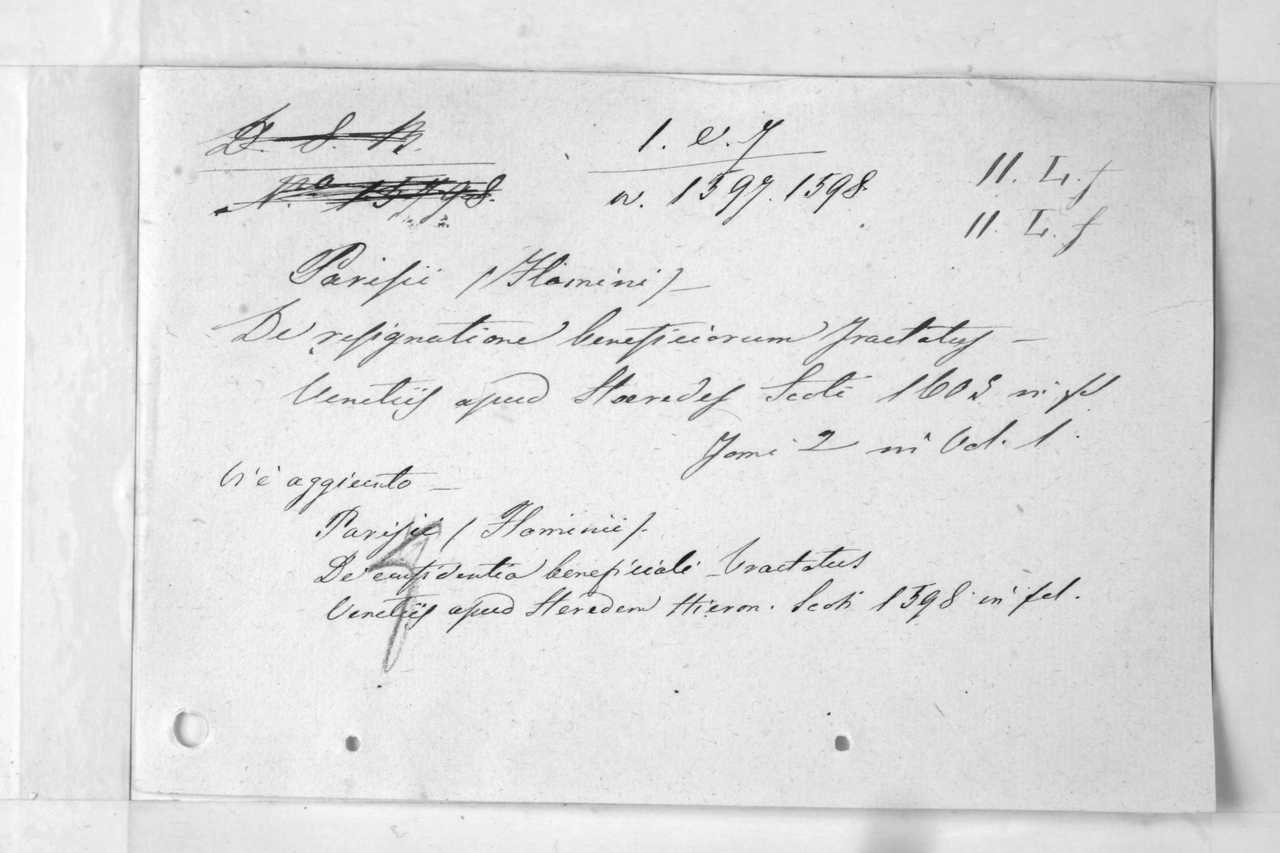 D. S. B.
1. e. 7
11. L. f
n.o 15798.
n. 1597. 1598.
11. L. f
Parisii (Flamini) —
De resignatione beneficiorum Tractatus —
Venetiis apud Haeredes Scoti 1605 in fol
Tomi 2 in Vol. 1.
Vi è aggiunto —
Parisii (Flaminii).
De confidentia beneficiali Tractatus
Venetiis apud Heredem Hieron. Scoti 1598 in fol.